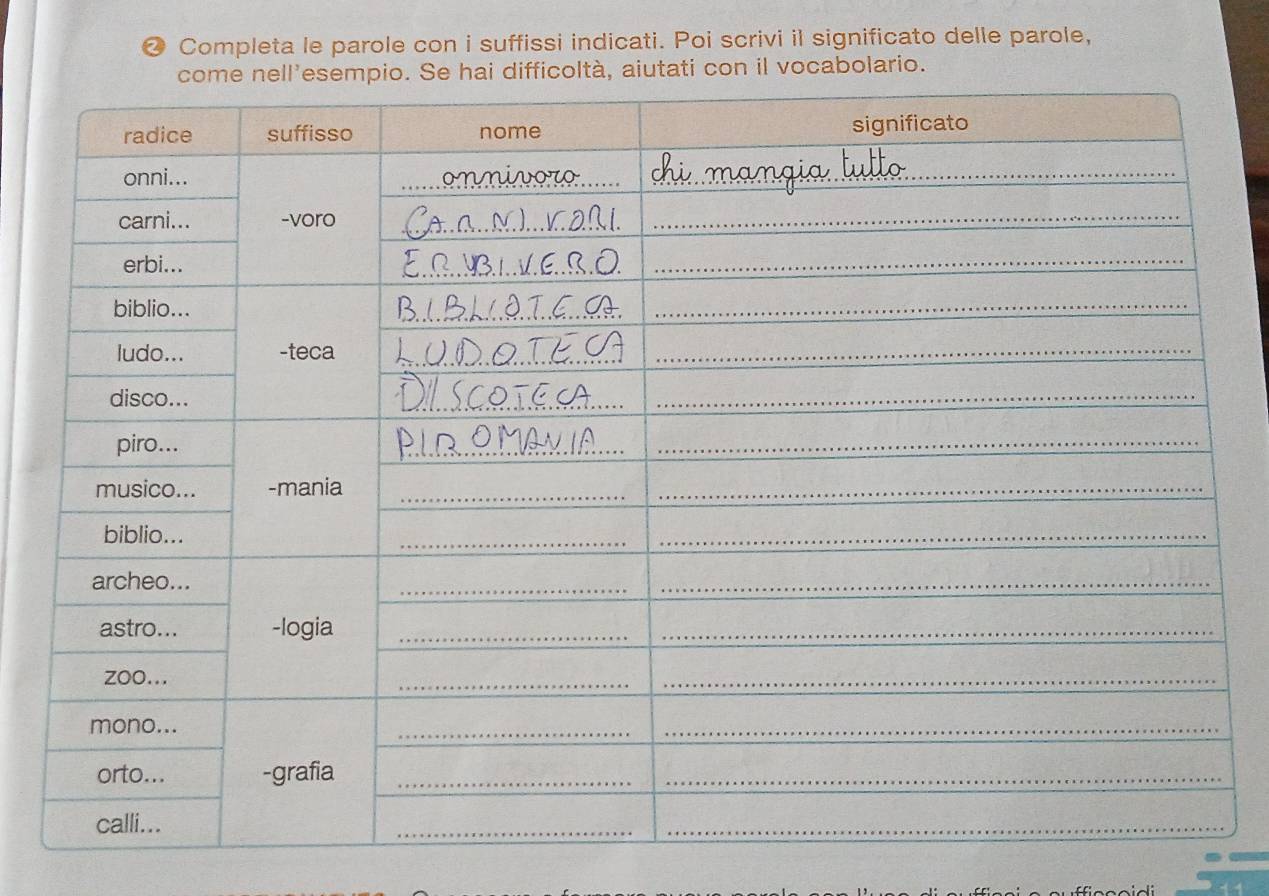 2 Completa le parole con i suffissi indicati. Poi scrivi il significato delle parole,
come nell'esempio. Se hai difficoltà, aiutati con il vocabolario.
radice suffisso nome significato
onni... onnivoro chi mangia tutto
carni... -voro CARNIVORI
erbi... ERBIVERO
biblio... BIBLIOTECA
ludo... -teca LUDOTECA
disco... DISCOTECA
piro... PIROMANIA
musico... -mania
biblio...
archeo...
astro... -logia
zoo...
mono...
orto... -grafia
calli...